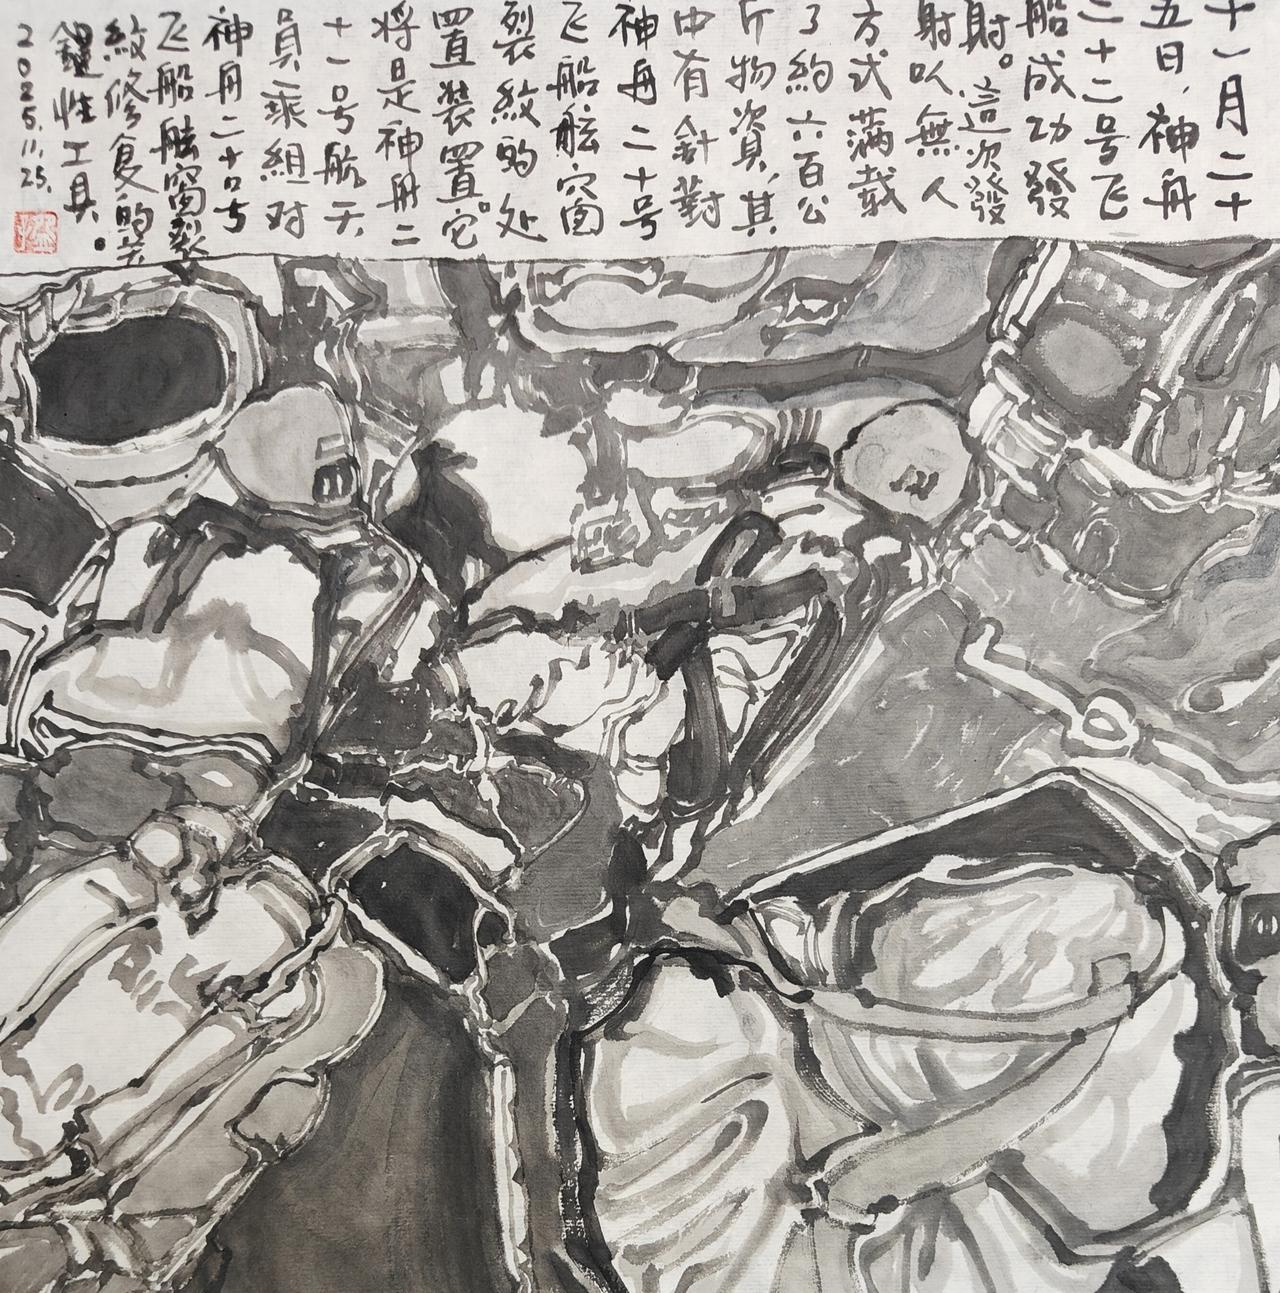 十一月二十
五日，神舟
二十二号飞
船成功發
射。這次發
射以無人
方式滿载
了約六百公
斤物資，其
中有針對
神舟二十号
飞船舷窗
裂紋的处
置装置。它
将是神舟二
十一号航天
員乘組对
神舟二十号
飞船舷窗裂
紋修复的关
鍵性工具。
2025.11.25.